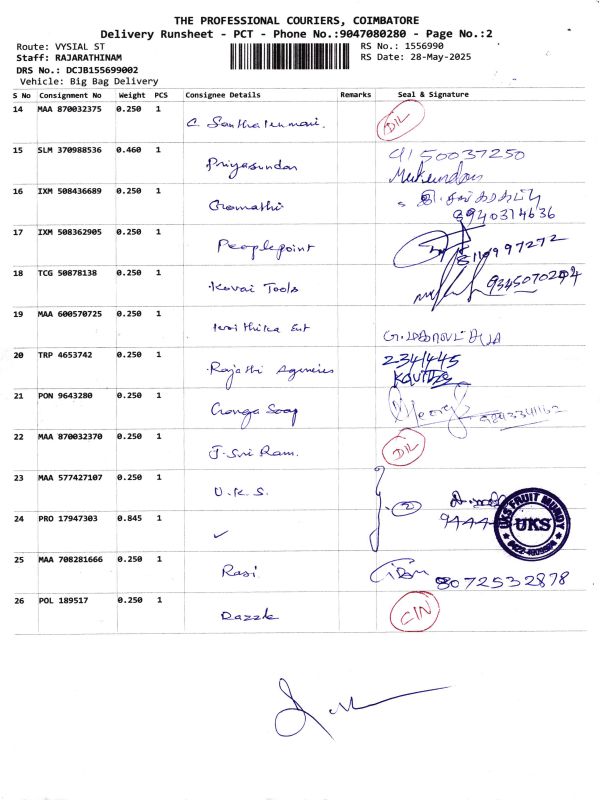 THE PROFESSIONAL COURIERS, COIMBATORE
Delivery Runsheet - PCT - Phone No.:9047080280 - Page No.:2
Route: VYSIAL ST
RS No.: 1556990
Staff: RAJARATHINAM
RS Date: 28-May-2025
DRS No.: DCJB155699002
Vehicle: Big Bag Delivery
S No Consignment No Weight PCS Consignee Details Remarks Seal & Signature
14 MAA 870032375 0.250 1
C. Santhalenmari. DIL
15 SLM 370988536 0.460 1 9150037250
Priyasundar Mukundan
16 IXM 508436689 0.250 1
Gomathi 9940314636
17 IXM 508362905 0.250 1
Peoplepoint
18 TCG 50878138 0.250 1
Kovai Tools
19 MAA 600570725 0.250 1
Ent
20 TRP 4653742 0.250 1 2341445
Rajathi Agencies Kavitha
21 PON 9643280 0.250 1
Ganga Soap
22 MAA 870032370 0.250 1
J. Sri Ram. DIL
23 MAA 577427107 0.250 1
U.K.S. 2
24 PRO 17947303 0.845 1
✓
UKS FRUIT MUNDY
UKS
25 MAA 708281666 0.250 1
Rasi 8072532878
26 POL 189517 0.250 1
Dazzle CIN